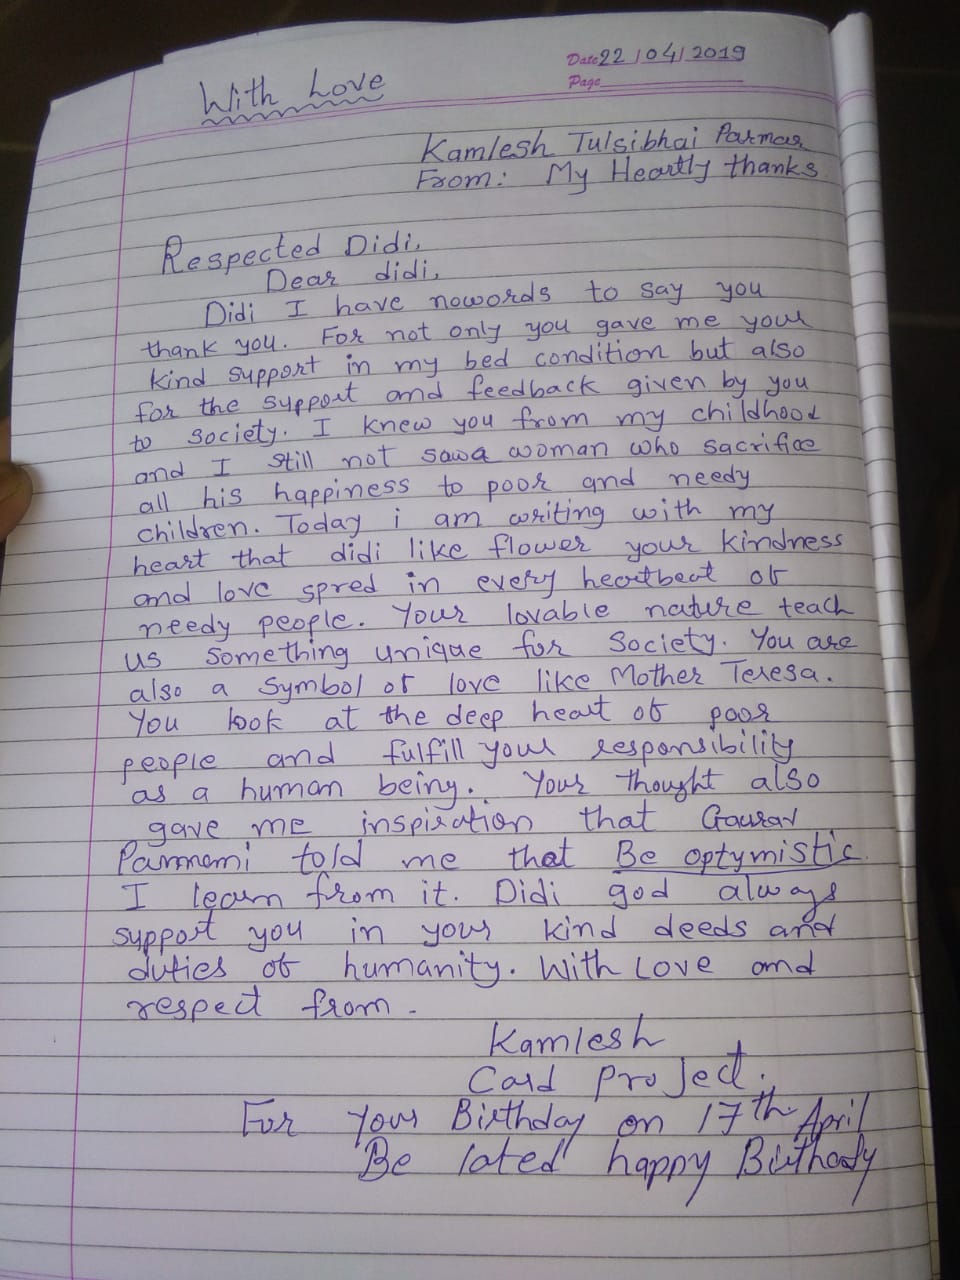 Date 22/04/2019
With Love
Page
Kamlesh Tulsibhai Parmar
From: My Heartly thanks
Respected Didi,
Dear didi,
Didi I have nowords to say you
thank you. For not only you gave me your
kind support in my bed condition but also
for the support and feedback given by you
to society. I knew you from my childhood
and I still not saw a woman who sacrifice
all his happiness to poor and needy
children. Today i am writing with my
heart that didi like flower your kindness
and love spred in every heartbeat of
needy people. Your lovable nature teach
us something unique for society. You are
also a symbol of love like Mother Teresa.
You look at the deep heart of poor
people and fulfill your responsibility
as a human being. Your thought also
gave me inspiration that Gaurav
told me that Be optymistic.
I learn from it. Didi god always
support you in your kind deeds and
duties of humanity. With Love and
respect from.
Kamlesh
Card Project.
For your Birthday on 17th April
Be lated happy Birthady